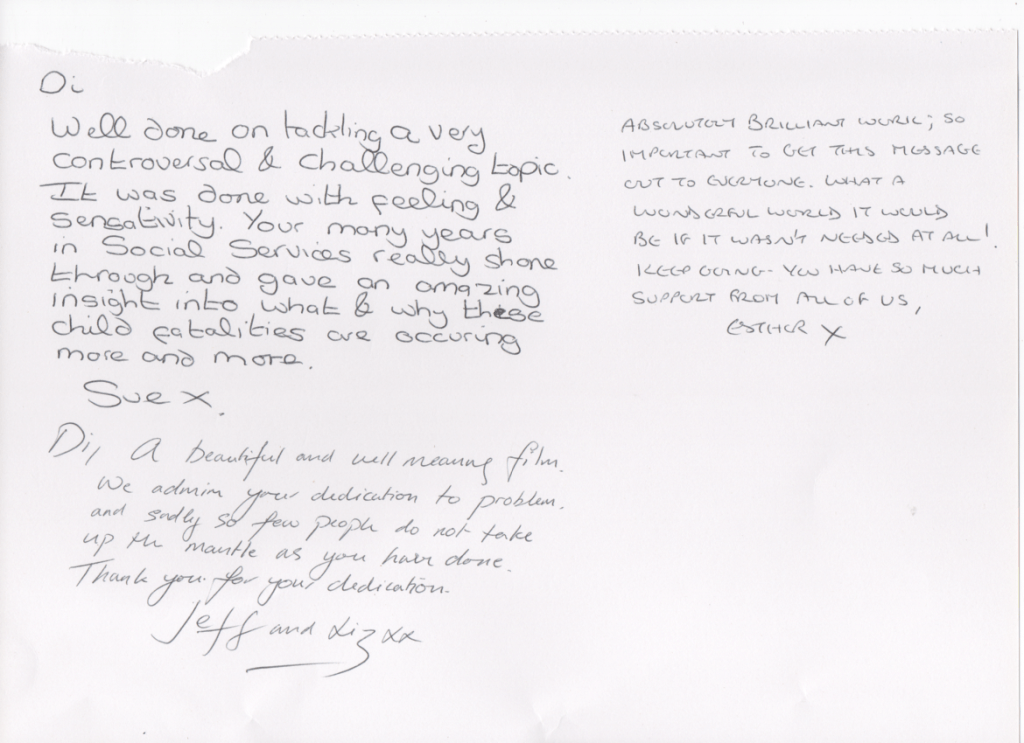 Di
Well done on tackling a very
controversal & challenging topic.
It was done with feeling &
sensativity. Your many years
in Social Services really shone
through and gave an amazing
insight into what & why these
child fatalities are occuring
more and more.
Sue x.
Di, A beautiful and well meaning film.
We admire your dedication to problem.
and sadly so few people do not take
up the mantle as you have done.
Thank you for your dedication.
Jeff and Liz xx
ABSOLUTELY BRILLIANT WORK; SO
IMPORTANT TO GET THIS MESSAGE
OUT TO EVERYONE. WHAT A
WONDERFUL WORLD IT WOULD
BE IF IT WASN'T NEEDED AT ALL!
KEEP GOING - YOU HAVE SO MUCH
SUPPORT FROM ALL OF US,
ESTHER X